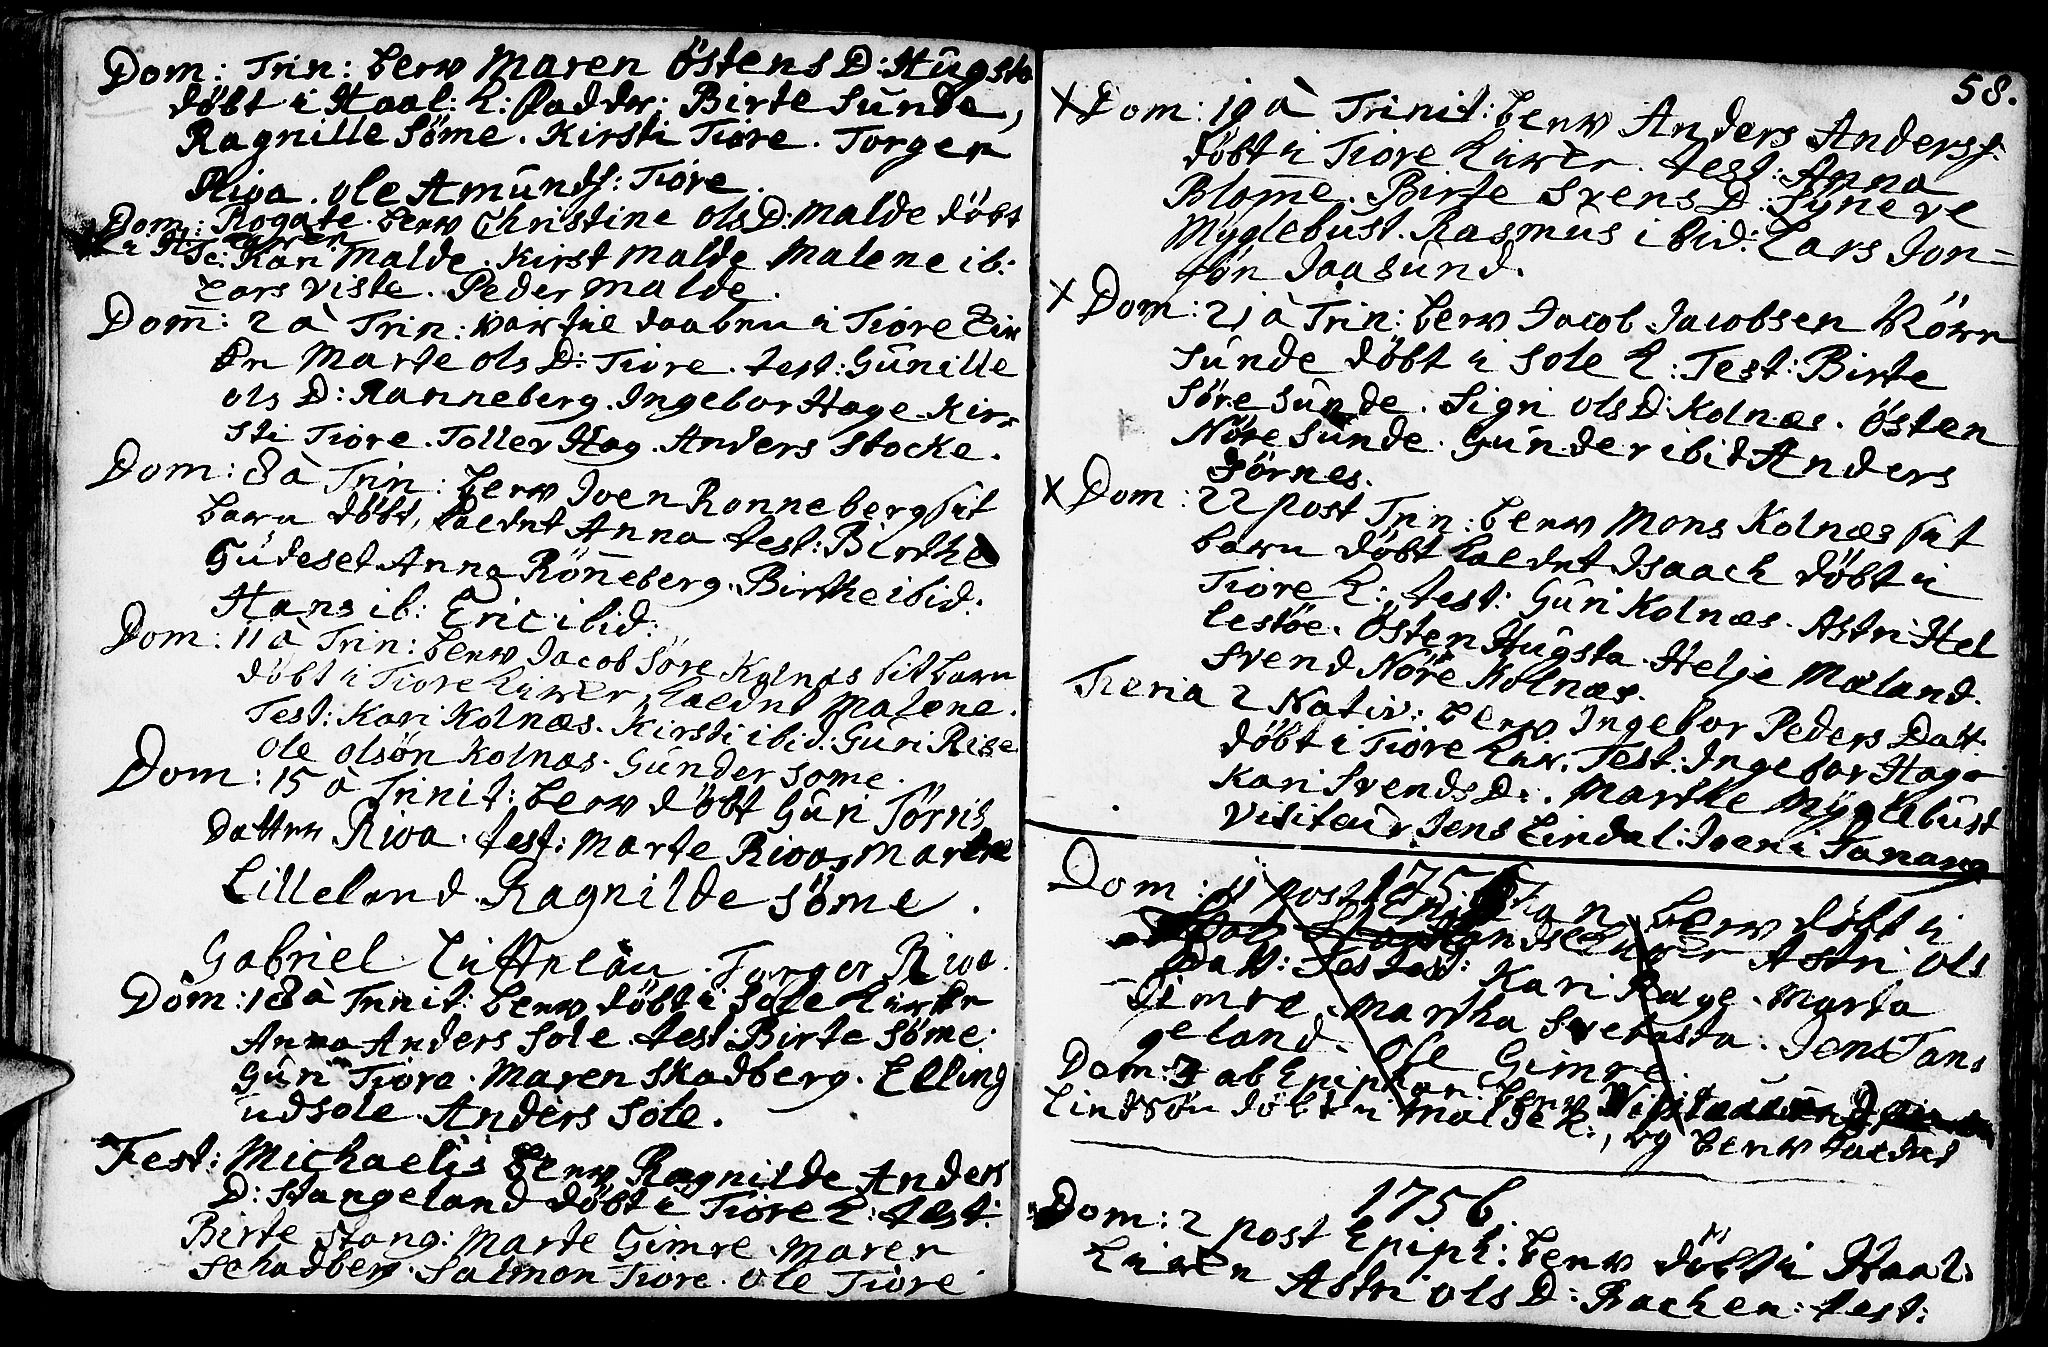 Dom: Trin: blew Maren Östens D: Hugsta
döbt i Haal: K: Fadder: Birte Sunde,
Ragnille Söme. Kirsti Tiore. Torger
Riva. Ole Amunds: Tiore.
Dom: Rogate blew Christine Ols D: Malde döbt
Kari Malde. Kirst Malde Malene ib:
Lars Viste. Peder Malde.
Dom: 2 à Trin: var til daaben i Tiore Kir
Marte Ols D: Tiore. test: Gunille
Ols D: Ranneberg. Ingebor Hage. Kir-
sti Tiore. Toller Hag. Anders Stocke.
Dom: 8 à Trin: blew Joen Ronneberg sit
barn döbt, kaldet Anna test: Birthe
Gudeset Anna Röneberg. Birthe ibid.
Hans ib: Eric ibid:
Dom: 11 à Trin: blew Jacob Söre Kolnes sit barn
döbt i Tiore Kircke kaldet Malene.
Test: Kari Kolnæs. Kirsti ibid: Guri Rise
Ole Olsön Kolnæs. Gunder Some.
Dom: 15 à Trinit: blew döbt Guri Törris
Datter Riva. test: Marte Riva, Marthe
Lilleland. Ragnilde Söme.
Gabriel Torger Riva.
Dom: 18 à Trinit: blew döbt i Sole Kircken
Anna Anders Sole. test: Birte Söme:
Guri Tiore. Maren Skadberg. Elling
udsole. Anders Sole.
Fest: Michaelis blew Ragnilde Anders
D: Stangeland döbt i Tiore K: test:
Birte Stang: Marte Gimre. Maren
Schadberg. Salmon Tiore. Ole Tiore
58.
x Dom: 19 à Trinit: blew Anders Anderss:
döbt i Tiore Kircke. test: Anna
Blome. Birte Svens D: Syneve
Myglebust. Rasmus ibid: Lars Jon=
sön Jaasund.
x Dom: 21 à Trin: blew Jacob Jacobsen
sunde döbt i Sole K: Test: Birte
Söre Sunde. Sigri Ols D: Kolnæs. Östen
Nöre Sunde. Gunder ibid Anders
Sörnes.
x Dom: 22 post Trin: blew Mons Kolnæs sit
barn döbt kaldet Isaach döbt i
Tiore K: test: Guri Kolnæs. Astri Hel
lestöe. Östen Hugsta. Helje Mæland.
Svend Nöre Kolnæs.
Feria 2 Nativ: blew Ingebor Peders Datt:
döbt i Tiore Kirk. Test: Ingebor Hage
Kari Svends D:. Marthe Myglebust
Visiteur Jens Lindal: Joen i Tanang
1756
Dom: post blew döbt i
Astri Ols
Datt: test: Kari Hage. Marta
Gimre. Martha. Jens Tans
geland. Ole Gimre.
Dom: 3 ab Epiphan: blew
döbt i Malde K:, og blew kaldet
1756
Dom: 2 post Epiph: blew döbt i Haal.
Kircken Astri Ols D: Rachen: test: